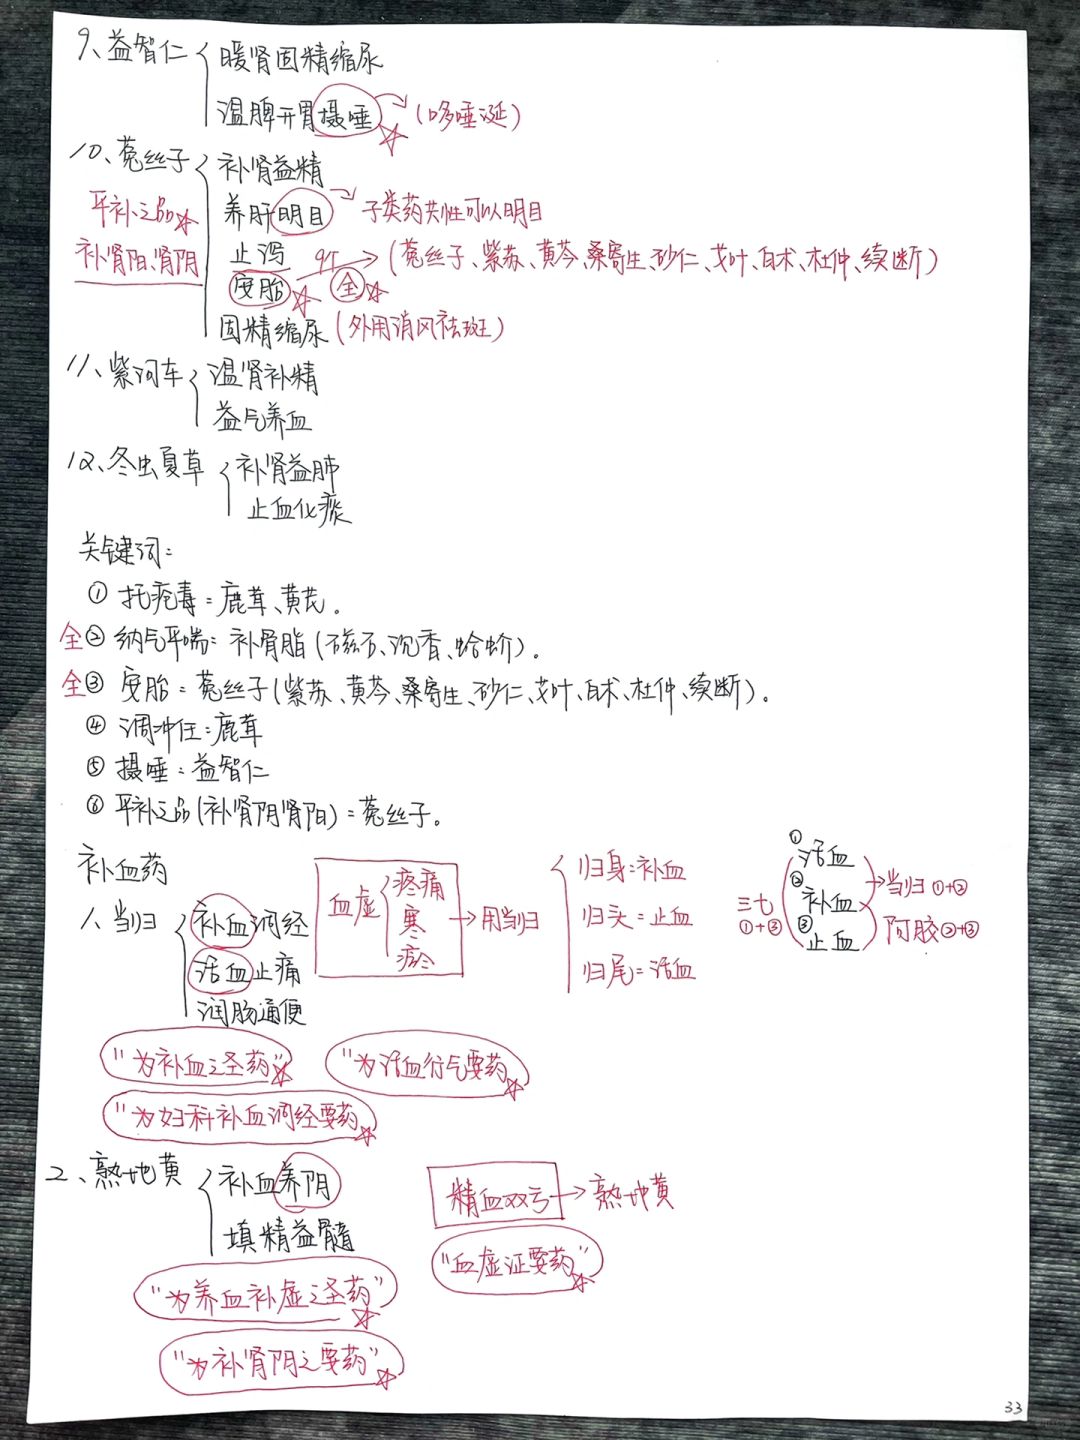 9、益智仁 暖肾固精缩尿
温脾开胃摄唾 (哆唾涎)
10、菟丝子 补肾益精
平补之品 养肝明目 子类药共性可以明目
补肾阳、肾阴 止泻
安胎 9个 全 (菟丝子、紫苏、黄芩、桑寄生、砂仁、艾叶、白术、杜仲、续断)
固精缩尿 (外用消风祛斑)
11、紫河车 温肾补精
益气养血
12、冬虫夏草 补肾益肺
止血化痰
关键词:
① 托疮毒:鹿茸、黄芪。
全② 纳气平喘:补骨脂(磁石、沉香、蛤蚧)。
全③ 安胎:菟丝子(紫苏、黄芩、桑寄生、砂仁、艾叶、白术、杜仲、续断)。
④ 调冲任:鹿茸
⑤ 摄唾:益智仁
⑥ 平补之品(补肾阴肾阳)=菟丝子。
补血药
1、当归 补血调经
活血止痛
润肠通便
血虚 疼痛 寒 瘀 用当归
归身=补血
归头=止血
归尾=活血
三七 ①+③
①活血
②补血
③止血
当归①+②
阿胶②+③
"为补血之圣药" "为活血行气要药"
"为妇科补血调经要药"
2、熟地黄 补血养阴
填精益髓
精血双亏 熟地黄
"血虚证要药"
"为养血补虚之圣药"
"为补肾阴之要药"
33